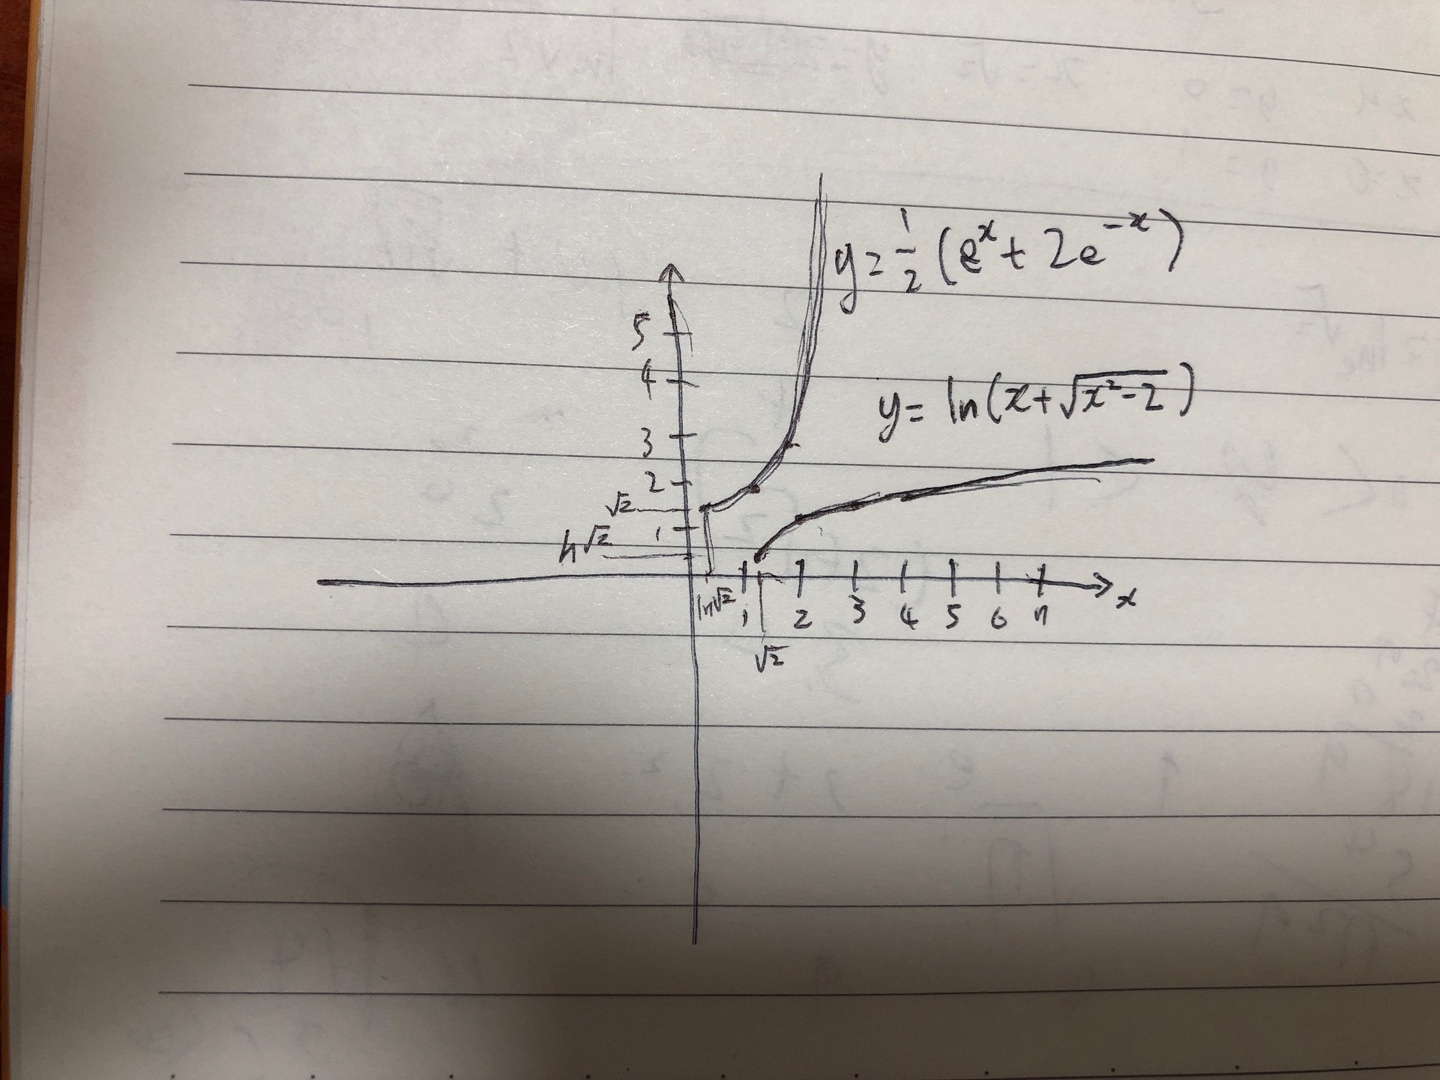 y = 1/2 (e^x + 2e^{-x})
5
4
y = ln(x+√(x²-2))
3
2
√2
1
ln√2
ln√2
1 2 3 4 5 6 7
x
√2